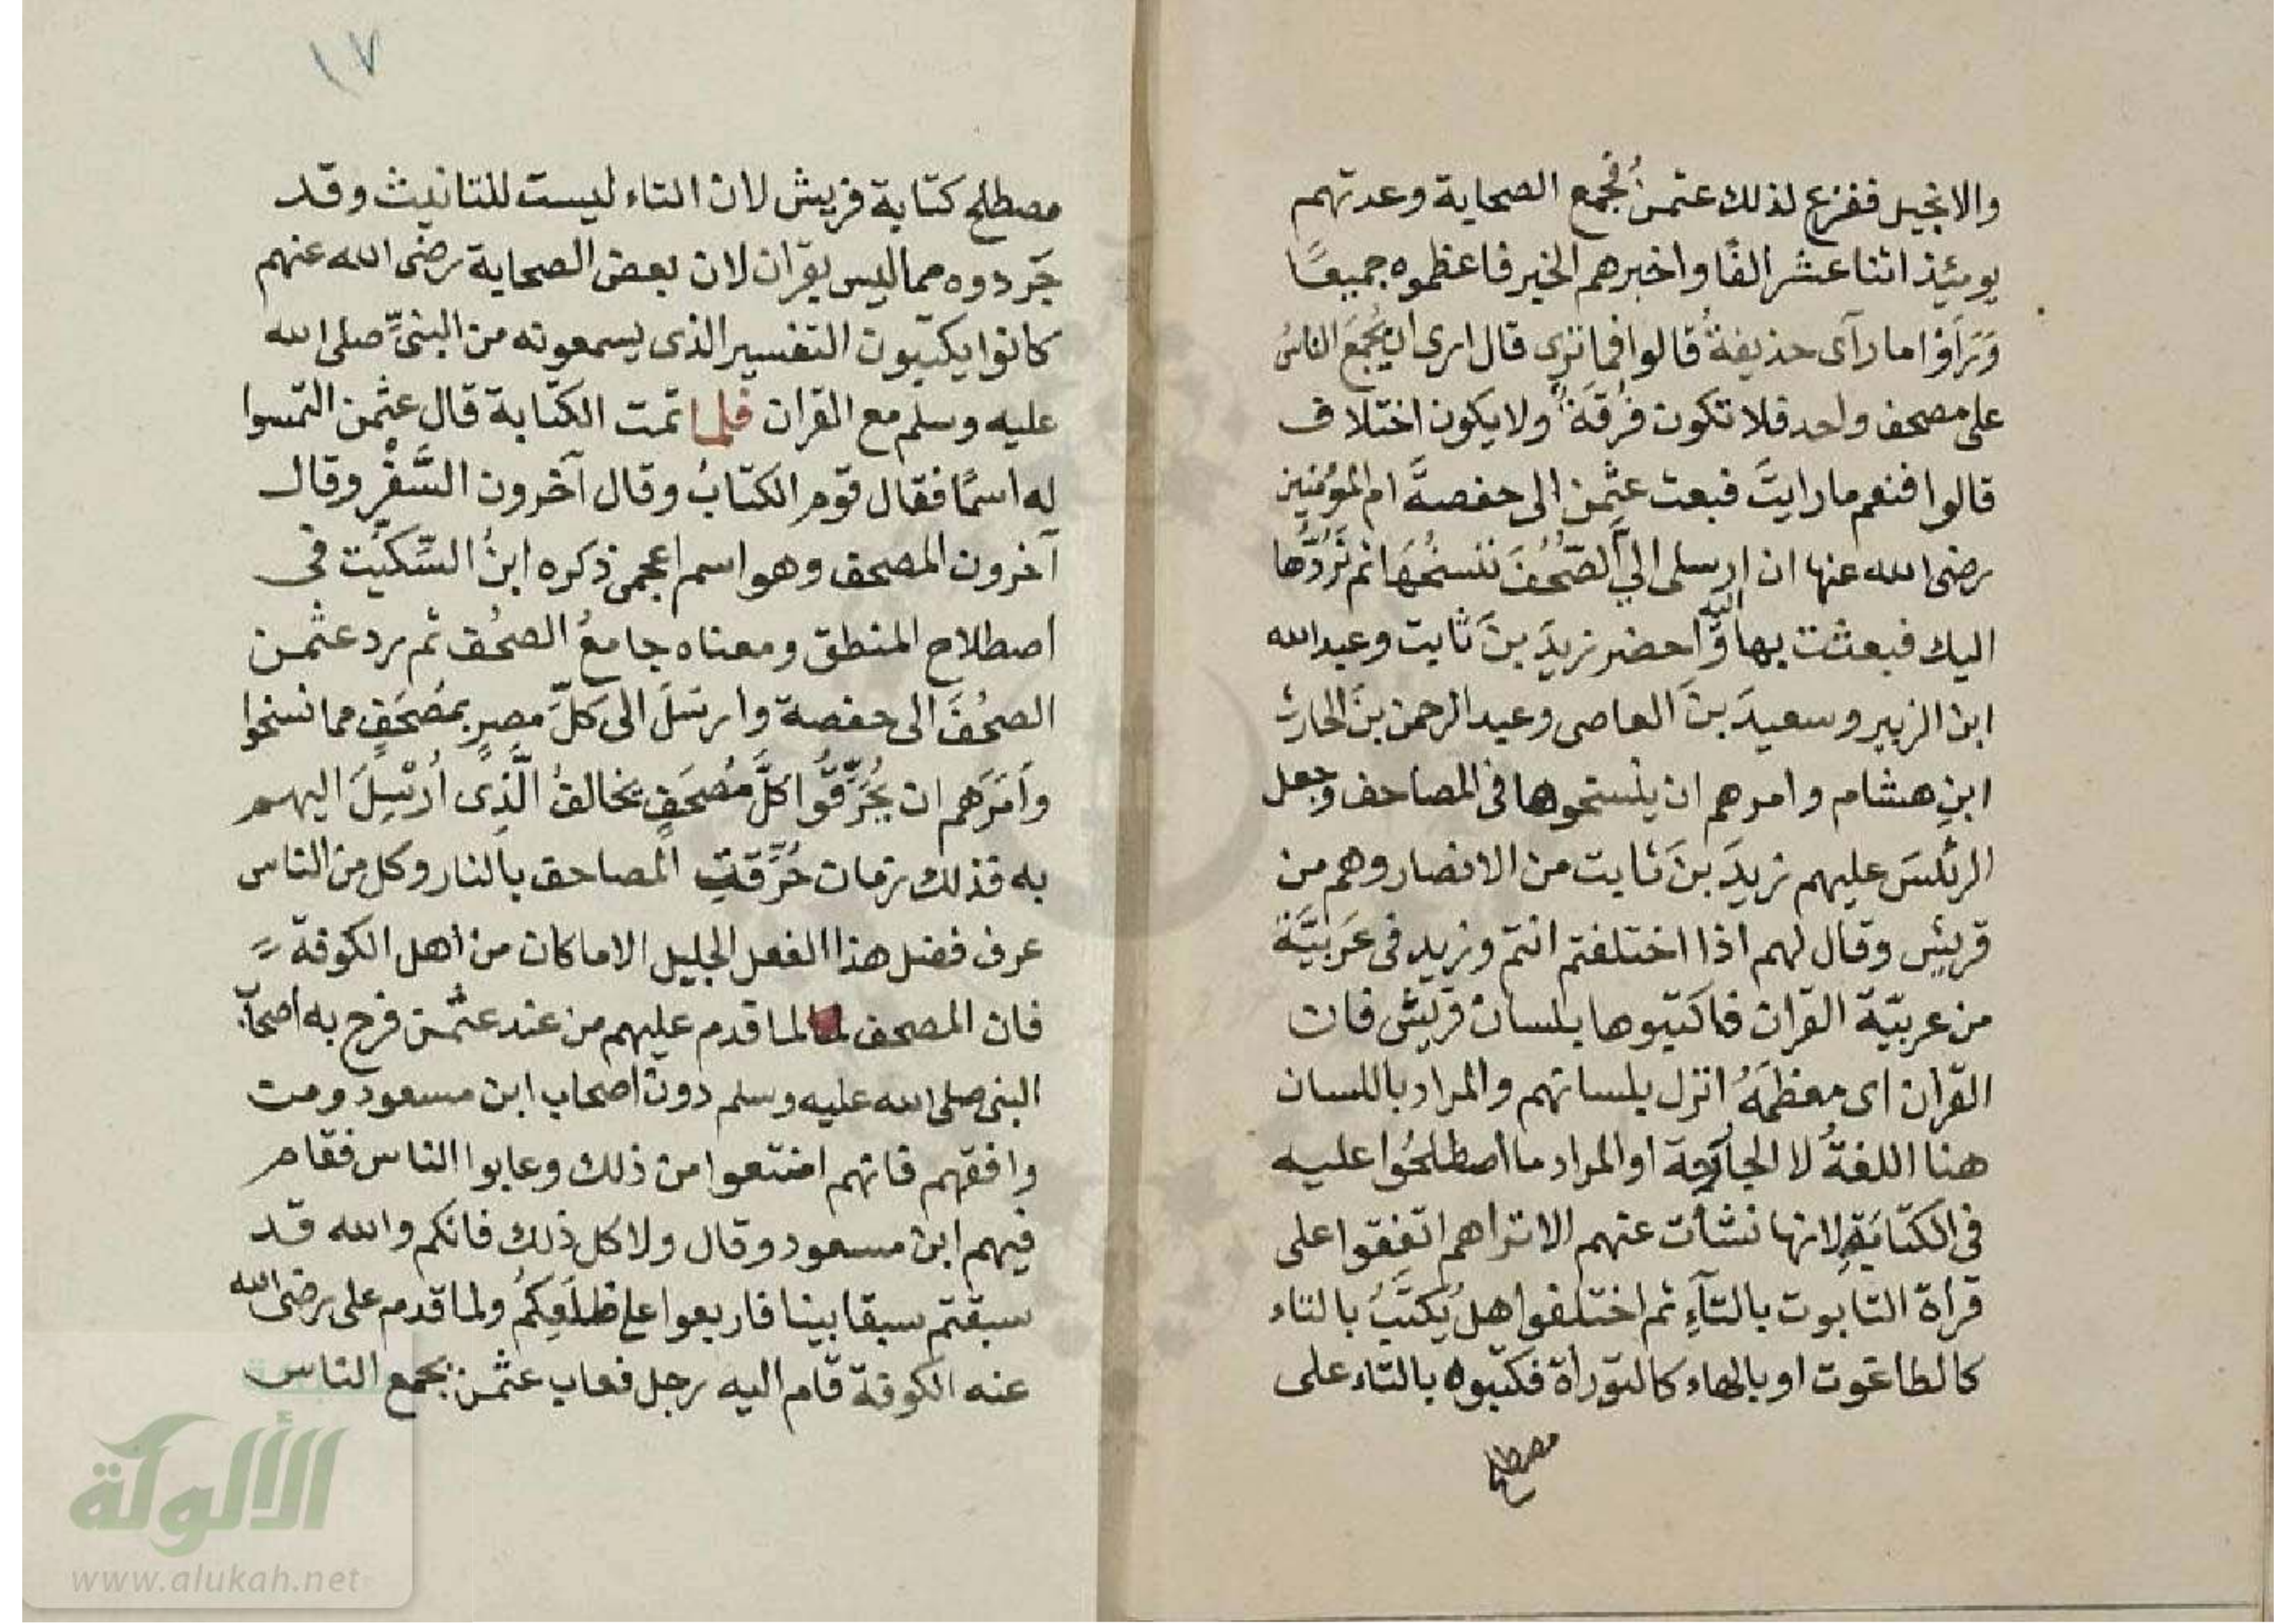 والانجيل ففزع لذلك عثمنُ فجمع الصحابة وعدتهم
يومئِذ اثنا عشر الفًا واخبرهم الخبر فاعظموه جميعًا
وَرَاَوْا ما رآى حذيفةُ قالوا فما ترى قال ارى ان يُجمَعَ الناسُ
على مصحف واحد فلا تكون فُرْقَةٌ ولا يكون اختلاف
قالوا فنعم ما رايتَ فبعث عثمن الى حفصةَ ام المؤمنين
رضى الله عنها ان ارسلى اليَّ الصُّحُفَ ننسخُهَا ثم نَرُدُّها
اليك فبعثت بها اليه وَاحضر زيدَ بنَ ثابت وعبد الله
ابن الزبير وسعيدَ بنَ العاصى وعبد الرحمن بنَ الحارث
ابنِ هشام وامرهم ان ينسخوها فى المصاحف وجعل
الرئسَ عليهم زيدَ بنَ ثابت من الانصار وهم من
قريش وقال لهم اذا اختلفتم انتم وزيد فى عَرَبيَّة
من عربيّة القران فاكتبوها بلسان قريش فان
القران اى معظمَهُ انزل بلسانهم والمراد باللسان
هنا اللغةُ لا الجارحة او المراد ما اصطلحُوا عليه
فى الكتابَةِ لانها نشأت عنهم الا تراهم اتفقوا على
قراة التابوت بالتآءِ ثم اختلفوا هل يُكتَبُ بالتاء
كالطاغوت او بالهاء كالتوراة فكتبوه بالتاء على
مصطلح
١٧
مصطلح كتابة قريش لان التاء ليست للتانيث وقد
جَردوه مما ليس بقران لان بعض الصحابة رضى الله عنهم
كانوا يكتبون التفسير الذى يسمعونه من النبىِّ صلى الله
عليه وسلم مع القران فلما تمت الكتابة قال عثمن التمسوا
له اسمًا فقال قوم الكتابُ وقال آخرون السَّفْر وقال
آخرون المصحف وهو اسم اعجمى ذكره ابنُ السِّكِّيْت فى
اصطلاح المنطق ومعناه جامعُ الصحُف ثم رد عثمن
الصحُفَ الى حفصة وارسَلَ الى كلِّ مصرٍ بمُصْحَفٍ مما نسخوا
وَاَمَرَهم ان يُحَرِّقُوا كلَّ مُصحَفٍ يخالفُ الَّذِى اُرْسِلَ اليهم
به فذلك زمان حُرِّقتِ المصاحف بالنار وكل من الناس
عرف فضل هذا الفعل الجليل الا ما كان من اهل الكوفة
فان المصحف لما لما قدم عليهم من عند عثمن فرح به اصحاب
النبى صلى الله عليه وسلم دون اصحاب ابن مسعود ومن
وافقهم فانهم امتنعوا من ذلك وعابوا الناس فقام
فيهم ابن مسعود وقال ولا كل ذلك فانكم والله قد
سبقتم سبقا بينا فاربعوا على ظلَعِكُم ولما قدم على رضى الله
عنه الكوفة قام اليه رجل فعاب عثمن بجمع الناس
الألوكة
www.alukah.net